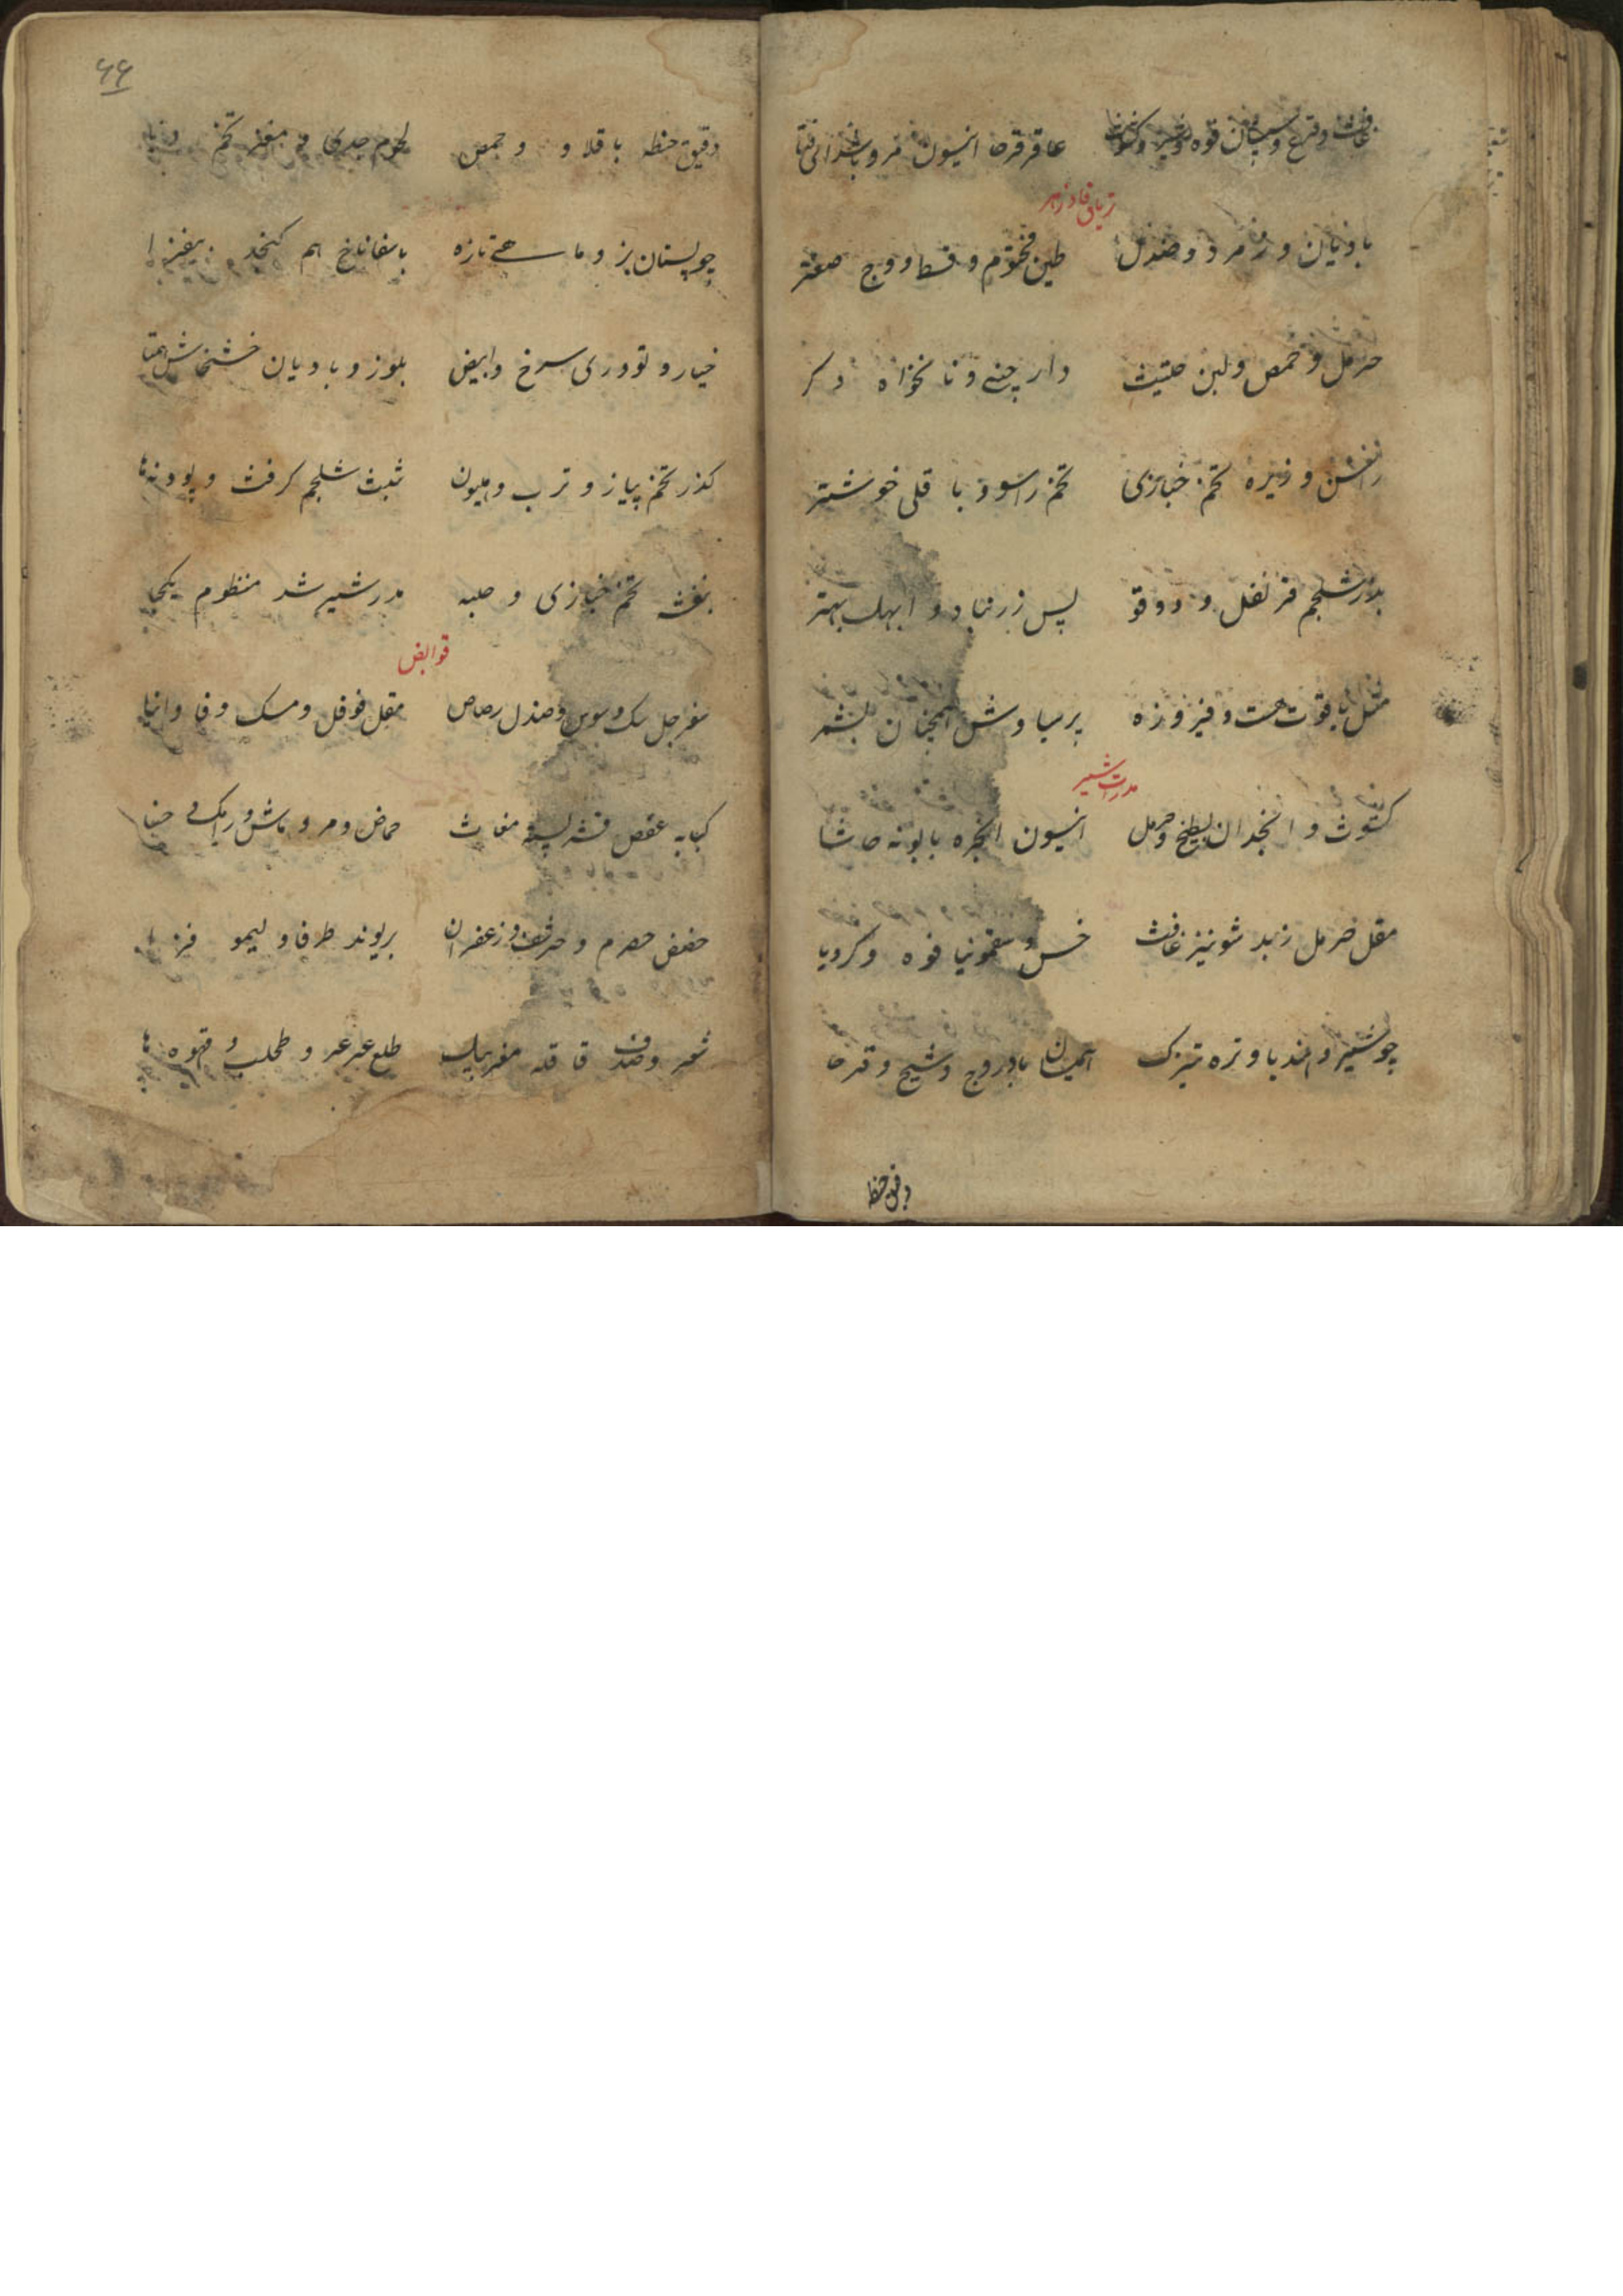 عاقرقرحا انیسون مرو
تریاق فادزهر
بادیان و زمرد و صندل طین مختوم و قسط و وج صعتر
حرمل و حمص و لبن حلتیت دار چینی و نانخواه دکر
و زیره تخم خبازی تخم راسو و با قلی خوشتر
بذر شلجم قرنفل و دوقو پس زرنباد و ابهل بهتر
مثل یاقوت هست و فیروزه پرسیاوش همچنان بشمر
مدرات شیر
کشوث و انجدان بطیخ و حرمل انیسون انجره بابونه حاشا
مقل حرمل زبد شونیز غافث خس و سقمونیا فوه و کرویا
چو شیر و هندبا و تره تیزک بادروج و شیح و قرحا
دقیق حنطه
۶۶
دقیق حنطه باقلا و و حمص لحوم جدی و مغز تخم
چو پستان بز و ماهی تازه باسفاناخ هم کنجد بیفزا
خیار و تودری سرخ و ابیض بلوز و بادیان خشخاش
کذر تخم پیاز و ترب و هلیون ثبث شلجم کرفث و پودنه‌ها
بنفشه تخم خبازی و حلبه مدر شیر شد منظوم یکجا
قوابض
سفرجل سک و سوس و صندل رصاص مقل فوفل و مسک و فاوانیا
کبابه عفص قشر پسته مغاث حماض و مر و ماش و رامک و حنا
حضض حصرم و و زعفران ریوند طرفا و لیمو
شعر و صدف قاقله طلع عرعر و طحلب و قهوه